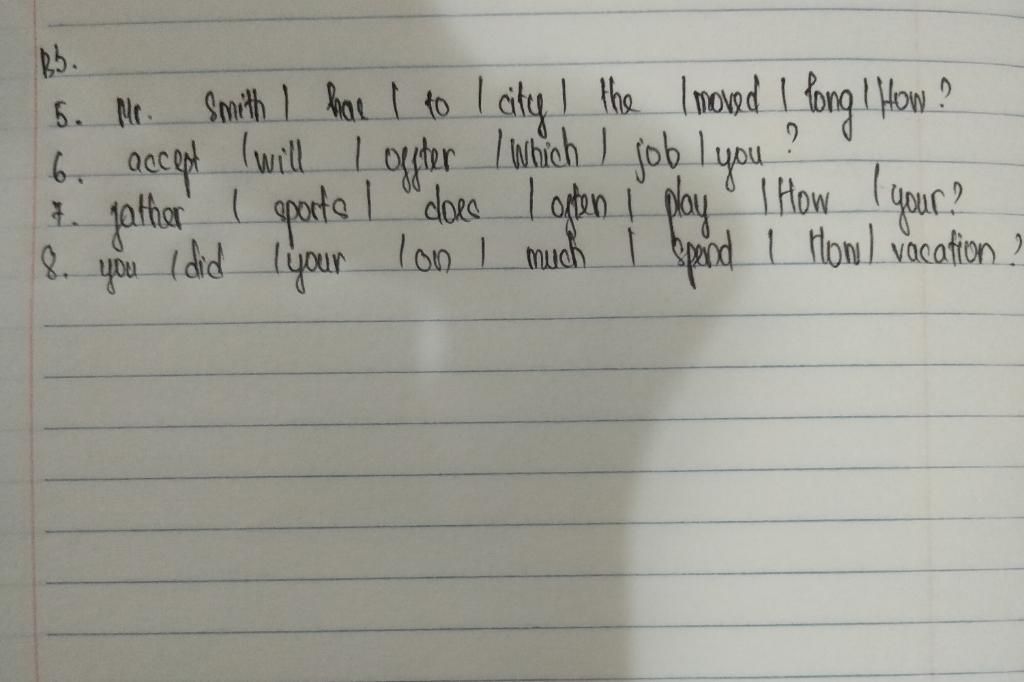 B5.
5. Mr. Smith / has / to / city / the / moved / long / How?
6. accept / will / offer / Which / job / you?
7. father / sports / does / often / play / How / your?
8. you / did / your / on / much / spend / How / vacation?